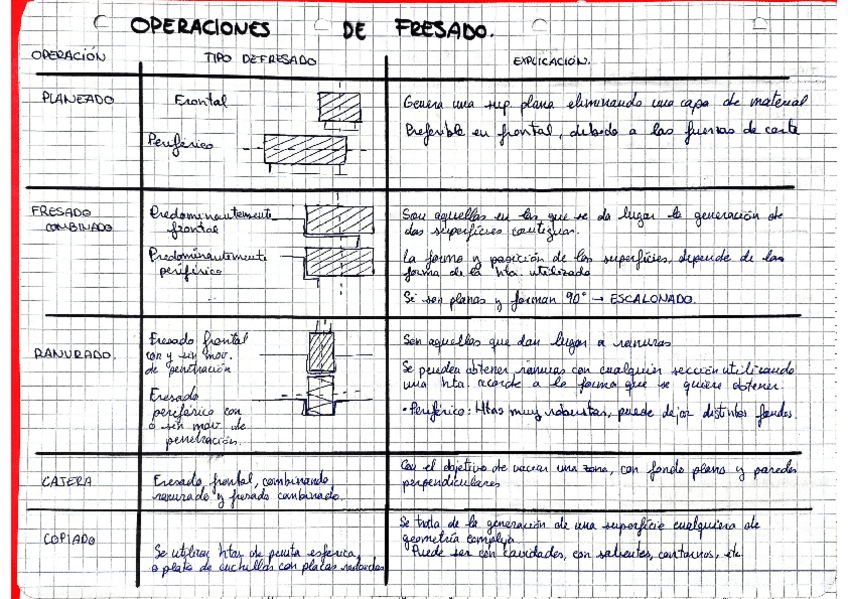 OPERACIONES DE FRESADO.
OPERACIÓN TIPO DE FRESADO EXPLICACIÓN.
PLANEADO
Frontal
Periférico
Genera una sup. plana eliminando una capa de material
Preferible en frontal, debido a las fuerzas de corte
FRESADO
COMBINADO
Predominantemente
frontal
Predominantemente
periférico
Son aquellas en las que se da lugar la generación de
dos superficies contiguas.
La forma y posición de las superficies, depende de la
forma de la hta. utilizada
Si son planas y forman 90° → ESCALONADO.
RANURADO.
Fresado frontal
con y sin mov.
de penetración
Fresado
periférico con
o sin mov de
penetración.
Son aquellas que dan lugar a ranuras
Se pueden obtener ranuras con cualquier sección utilizando
una hta. acorde a la forma que se quiere obtener.
• Periférico: Htas muy robustas, puede dejar distintos fondos.
CAJERA
Fresado frontal, combinando
ranurado y fresado combinado.
Con el objetivo de vaciar una zona, con fondo plano y paredes
perpendiculares
COPIADO
Se utilizan htas de punta esférica,
o plato de cuchillas con placas redondas
Se trata de la generación de una superficie cualquiera de
geometría compleja
Puede ser con cavidades, con salientes, contornos, etc